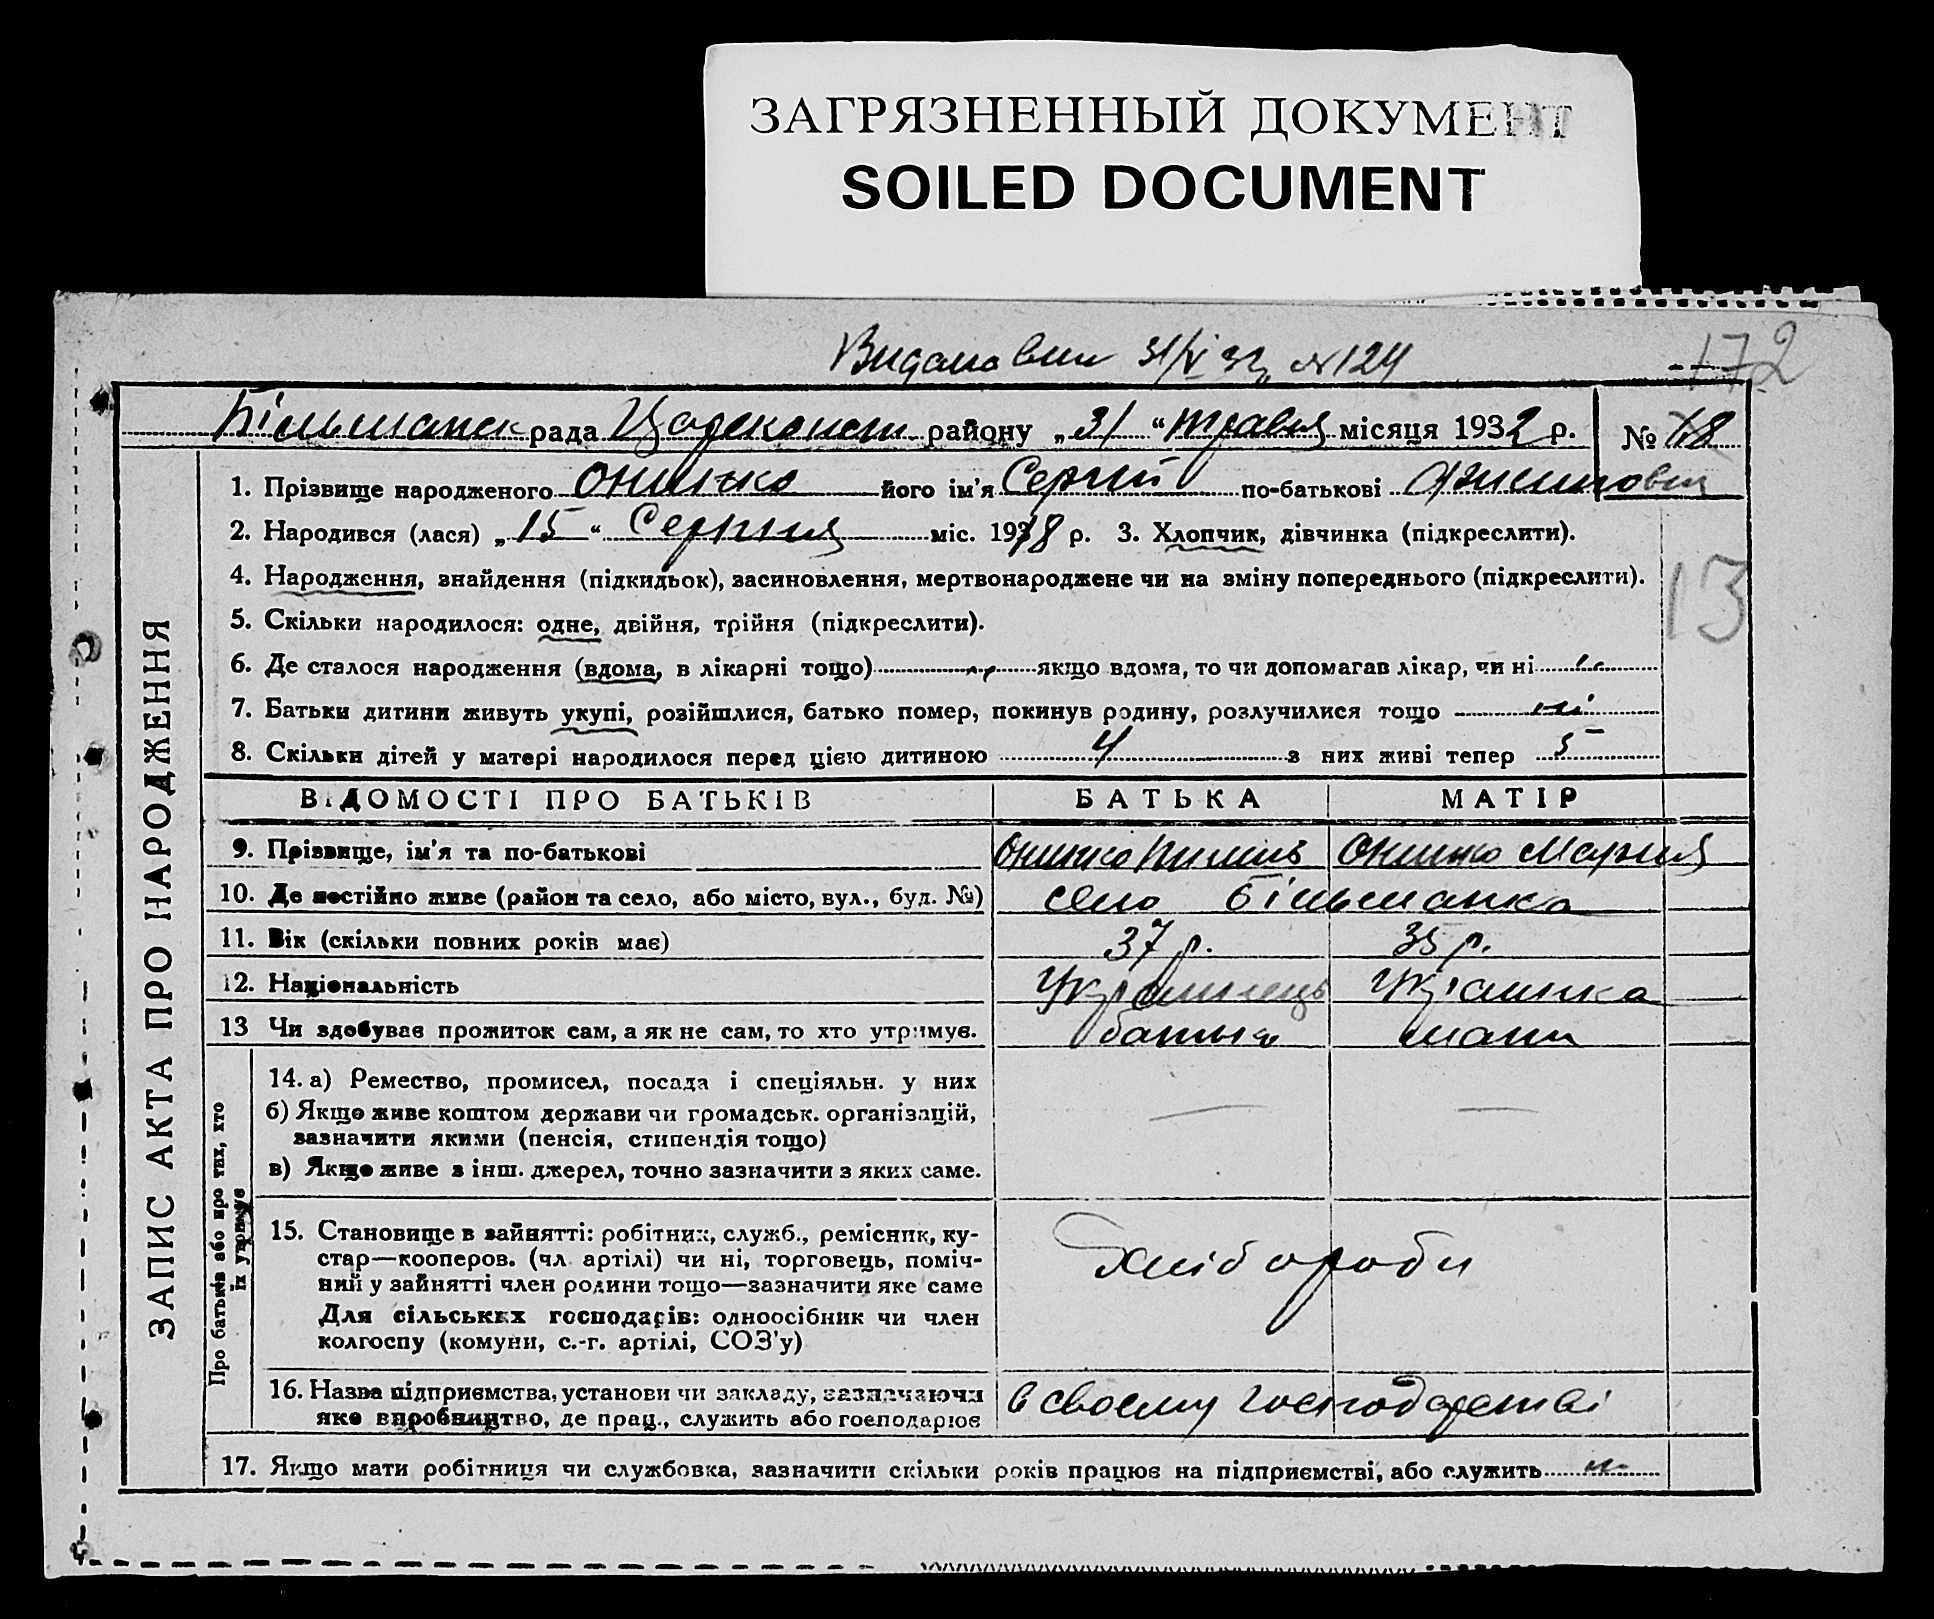 ЗАГРЯЗНЕННЫЙ ДОКУМЕНТ
SOILED DOCUMENT
172
31/V 32 № 124
Більманск рада Цареконст району „31“ травня місяця 1932 р. № 18
1. Прізвище народженого Онишко його ім'я Сергій по-батькові
2. Народився (лася) „15“ Серпня міс. 1918 р. 3. Хлопчик, дівчинка (підкреслити).
4. Народження, знайдення (підкидьок), засиновлення, мертвонароджене чи на зміну попереднього (підкреслити).
13
5. Скільки народилося: одне, двійня, трійня (підкреслити).
6. Де сталося народження (вдома, в лікарні тощо) якщо вдома, то чи допомагав лікар, чи ні
7. Батьки дитини живуть укупі, розійшлися, батько помер, покинув родину, розлучилися тощо ні
8. Скільки дітей у матері народилося перед цією дитиною 4 з них живі тепер 5
ЗАПИС АКТА ПРО НАРОДЖЕННЯ
ВІДОМОСТІ ПРО БАТЬКІВ БАТЬКА МАТІР
9. Прізвище, ім'я та по-батькові Онишко Пилип Онишко Мария
10. Де постійно живе (район та село, або місто, вул., буд. №) село Більманка
11. Вік (скільки повних років має) 37 р. 35 р.
12. Національність Українець Українка
13 Чи здобуває прожиток сам, а як не сам, то хто утримує. батько мати
Про батьків або про тих, хто їх утримує
14. а) Ремество, промисел, посада і спеціяльн. у них
б) Якщо живе коштом держави чи громадськ. організацій,
зазначити якими (пенсія, стипендія тощо)
в) Якщо живе з інш. джерел, точно зазначити з яких саме.
15. Становище в зайнятті: робітник, служб., ремісник, ку-
стар—кооперов. (чл. артілі) чи ні, торговець, поміч-
ний у зайнятті член родини тощо—зазначити яке саме
Хлібороби
Для сільських господарів: одноосібник чи член
колгоспу (комуни, с.-г. артілі, СОЗ'у)
16. Назва підприємства, установи чи закладу, зазначаючи
яке виробництво, де прац., служить або господарює
в своєму господарстві
17. Якщо мати робітниця чи службовка, зазначити скільки років працює на підприємстві, або служить